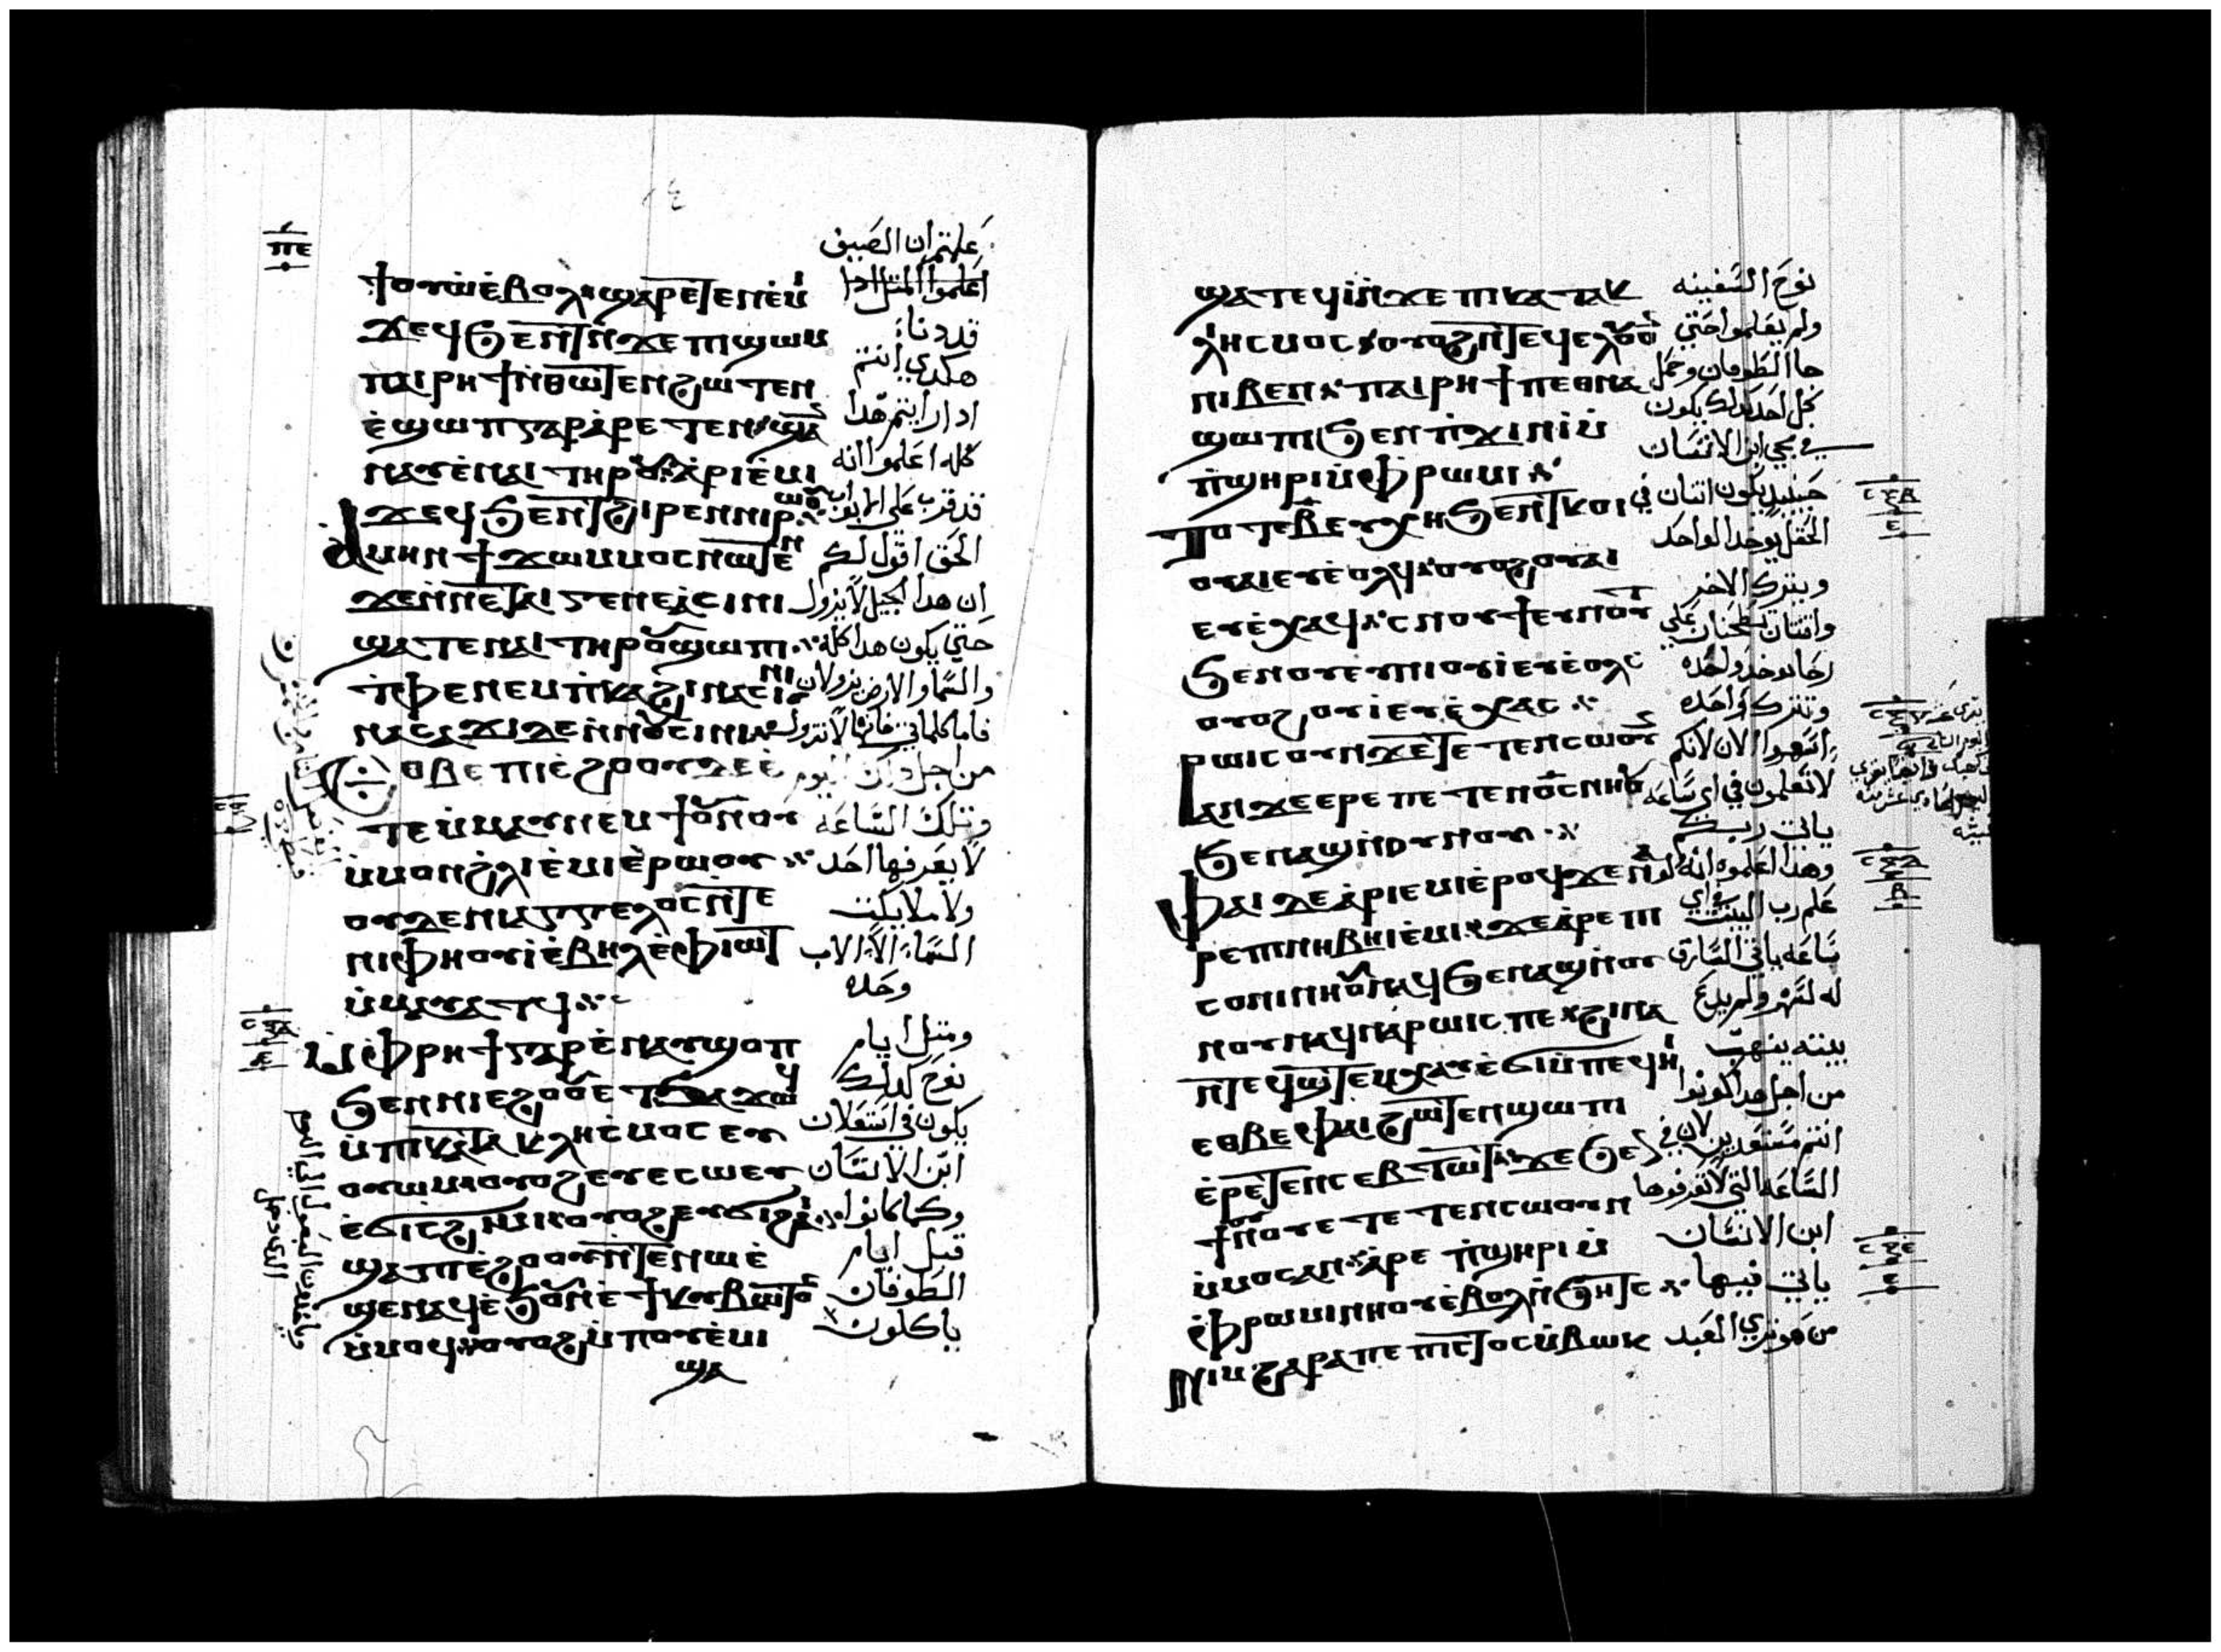 ⲡⲉ
ϯⲟⲩⲱ ⲉ̀ⲃⲟⲗ ϣⲁⲣⲉⲧⲉⲛⲉ̀ⲙⲓ
ϫⲉϥϧⲉⲛⲧ ⲛ̀ϫⲉⲡⲓϣⲱⲙ
ⲡⲁⲓⲣⲏϯ ⲛ̀ⲑⲱⲧⲉⲛ ϩⲱⲧⲉⲛ
ⲉ̀ϣⲱⲡ ⲅⲁⲣ ⲁ̀ⲣⲉⲧⲉⲛϣⲁ
ⲛⲁⲩ ⲉ̀ⲛⲁⲓ ⲧⲏⲣⲟⲩ ⲁ̀ⲣⲓⲉ̀ⲙⲓ
ϫⲉϥϧⲉⲛⲧ ϩⲓⲣⲉⲛ ⲛⲓⲣⲱⲟⲩ
ⲁ̀ⲙⲏⲛ ϯϫⲱ ⲙⲙⲟⲥ ⲛⲱⲧⲉⲛ
ϫⲉ ⲛ̀ⲛⲉⲧⲁⲓⲅⲉⲛⲉⲁ̀ ⲥⲓⲛⲓ
ϣⲁⲧⲉⲛⲁⲓ ⲧⲏⲣⲟⲩ ϣⲱⲡⲓ
ⲧ̀ⲫⲉ ⲛⲉⲙ ⲡ̀ⲕⲁϩⲓ ⲛⲁⲥⲓⲛⲓ
ⲛⲁⲥⲁϫⲓ ⲇⲉ ⲛ̀ⲛⲟⲩⲥⲓⲛⲓ
ⲟⲃⲉ ⲡⲓⲉ̀ϩⲟⲟⲩ ⲇⲉ ⲉ̀
ⲧⲉⲙ̀ⲙⲁⲩ ⲛⲉⲙ ϯⲟⲩⲛⲟⲩ
ⲙ̀ⲙⲟⲛ ϩ̀ⲗⲓ ⲉ̀ⲙⲓ ⲉ̀ⲣⲱⲟⲩ
ⲟⲩⲇⲉ ⲛⲓⲁⲅⲅⲉⲗⲟⲥ ⲛ̀ⲧⲉ
ⲛⲓⲫⲏⲟⲩⲓ̀ ⲉ̀ⲃⲏⲗ ⲉ̀ⲫⲓⲱⲧ
ⲙ̀ⲙⲁⲩⲁⲧϥ
ⲙ̀ⲫⲣⲏϯ ⲅⲁⲣ ⲉ̀ⲛⲁⲩϣⲟⲡ
ϧⲉⲛ ⲛⲓⲉϩⲟⲟⲩ ⲉⲧϧⲁϫⲱϥ
ⲙ̀ⲡⲓⲕⲁⲧⲁⲕⲗⲏⲥⲙⲟⲥ ⲉⲩ
ⲟⲩⲱⲙ ⲟⲩⲟϩ ⲉⲩⲥⲱ ⲉⲩ
ⲉ̀ϭⲓⲥϩⲓⲙⲓ ⲟⲩⲟϩ ⲉⲩϭⲓϩⲁⲓ
ϣⲁ ⲡⲓⲉ̀ϩⲟⲟⲩ ⲛ̀ⲧⲉⲛⲱⲉ̀
ϣⲉⲛⲁϥ ⲉ̀ϧⲟⲩⲛ ⲉ̀ϯⲕⲩⲃⲱⲧⲟⲥ
ⲙ̀ⲙⲟϥ ⲟⲩⲟϩ ⲙ̀ⲡⲟⲩⲉ̀ⲙⲓ
ϣⲁ
علمتم ان الصيف
اعلموا المثل اذا
قد دنا
هكدي انتم
ادا رايتم هدا
كله اعلموا انه
قد قرب على الابواب
الحق اقول لكم
ان هدا الجيل لا يزول
حتي يكون هدا كله
والسما والارض يزولان
فاما كلماتي فانها لا تزول
من اجل دلك اليوم
وتلك الساعه
لا يعرفها احد
ولا ملايكت
السماء الا الاب
وحده
ومثل ايام
نوح كدلك
يكون في استعلان
ابن الانسان
وكما كانوا
قبل ايام
الطوفان
ياكلون
ϣⲁⲧⲉϥⲓ̀ ⲛ̀ϫⲉ ⲡⲓⲕⲁⲧⲁⲕ
ⲗⲏⲥⲙⲟⲥ ⲟⲩⲟϩ ⲛ̀ⲧⲉϥⲉⲗ ⲟⲩⲟⲛ
ⲛⲓⲃⲉⲛ ⲡⲁⲓⲣⲏϯ ⲡⲉⲑⲛⲁ
ϣⲱⲡⲓ ϧⲉⲛ ⲡ̀ϫⲓⲛⲓ̀ ⲙ̀
ⲡ̀ϣⲏⲣⲓ ⲙ̀ⲫⲣⲱⲙⲓ
ⲧⲟⲧⲉ ⲃ̅ ⲉⲩⲭⲏ ϧⲉⲛ ⲧⲕⲟⲓ
ⲟⲩⲁⲓ ⲉⲩⲉ̀ⲟⲗϥ ⲟⲩⲟϩ ⲟⲩⲁⲓ
ⲉⲩⲉ̀ⲭⲁϥ ⲥⲛⲟⲩϯ ⲉⲩⲛⲟⲩⲧ
ϧⲉⲛ ⲟⲩⲉⲩⲛⲓ ⲟⲩⲓ̀ ⲉⲩⲉ̀ⲟⲗⲥ
ⲟⲩⲟϩ ⲟⲩⲓ̀ ⲉⲩⲉ̀ⲭⲁⲥ
ⲣⲱⲓⲥ ⲟⲩⲛ ϫⲉ ⲧⲉⲧⲉⲛⲥⲱⲟⲩⲛ
ⲁⲛ ϫⲉ ⲉⲣⲉ ⲡⲉⲧⲉⲛⲟ̅ⲥ̅ ⲛⲏⲟⲩ
ϧⲉⲛ ⲁϣ ⲛ̀ⲟⲩⲛⲟⲩ
ⲫⲁⲓ ⲇⲉ ⲁ̀ⲣⲓⲉⲙⲓ ⲉ̀ⲣⲟϥ ϫⲉ ⲉⲛⲁ
ⲣⲉ ⲡⲓⲛⲏⲃⲏⲓ ⲉ̀ⲙⲓ ϫⲉ ⲁ̀ⲣⲉ ⲡⲓ
ⲥⲟⲛⲓ ⲛⲏⲟⲩ ⲛⲁϥ ϧⲉⲛ ⲁϣ ⲛ̀ⲟⲩ
ⲛⲟⲩ ⲛⲁϥⲛⲁⲣⲱⲓⲥ ⲡⲉ ϩⲓⲛⲁ
ⲛ̀ⲧⲉϥϣⲧⲉⲙⲭⲁⲩ ⲉ̀ϭⲓ ⲙ̀ⲡⲉϥⲏⲓ
ⲉⲑⲃⲉ ⲫⲁⲓ ϩⲱⲧⲉⲛ ϣⲱⲡⲓ
ⲉ̀ⲣⲉⲧⲉⲛⲥⲉⲃⲧⲱⲧ ϫⲉ ϧⲉⲛ
ϯⲟⲩⲛⲟⲩ ⲉⲧⲉⲧⲉⲛⲥⲱⲟⲩⲛ
ⲙ̀ⲙⲟⲥ ⲁⲛ ⲁ̀ⲣⲉ ⲡ̀ϣⲏⲣⲓ ⲙ̀
ⲫⲣⲱⲙⲓ ⲛⲏⲟⲩ ⲉ̀ⲃⲟⲗ ⲛ̀ϧⲏⲧⲥ
ⲛⲓⲙ ϩⲁⲣⲁ ⲡⲉ ⲡⲓⲡⲓⲥⲧⲟⲥ ⲙ̀ⲃⲱⲕ
نوح السفينه
ولم يعلموا حتي
جا الطوفان وحمل
كل احد كدلك يكون
في مجي ابن الانسان
حينيد يكون اتنان في
الحقل يوخد الواحد
ويترك الاخر
واثنتان تطحنان علي
رحا توخد واحده
وتترك واحده
اسهروا الان لانكم
لا تعلمون في اي ساعه
ياتي ربكم
وهدا اعلموه انه لو
علم رب البيت في اي
ساعه ياتي السارق
له لسهر ولم يدع
بيته ينهب
من اجل هدا كونوا
انتم مستعدين لان في
الساعه التي لا تعرفوها
ابن الانسان
ياتي فيها
من هو تري العبد
ⲥⲝⲃ
ⲉ
ⲥⲝⲇ
ⲃ
ⲥⲝⲉ
ⲉ